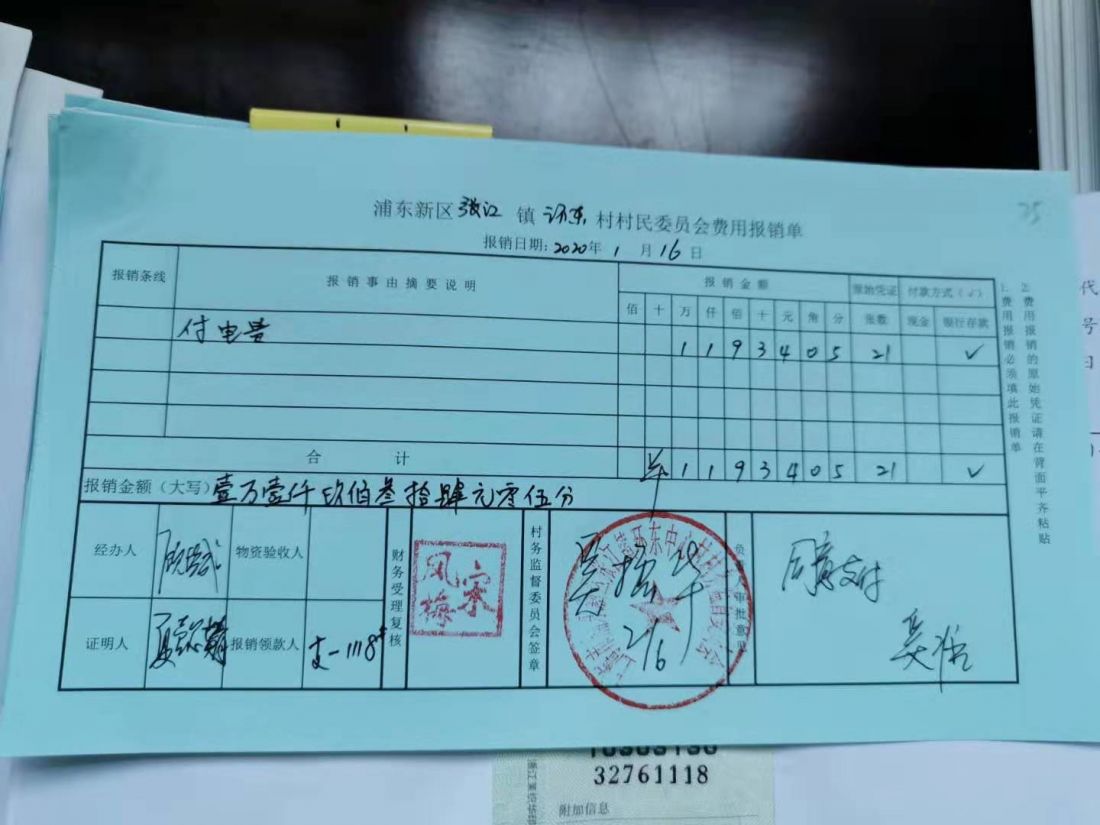 浦东新区张江镇环东村村民委员会费用报销单
报销日期:2020年1月16日
25
报销条线 报销事由摘要说明 报销金额 原始凭证 付款方式(√)
佰 十 万 仟 佰 十 元 角 分 张数 现金 银行存款
付电费 1 1 9 3 4 0 5 21 √
合计 ¥ 1 1 9 3 4 0 5 21 √
报销金额(大写)壹万壹仟玖佰叁拾肆元零伍分
经办人 物资验收人
证明人 报销领款人 支-1118#
财务受理复核
宋凤梅
村务监督委员会签章
审批意见
同意支付
1.费用报销必须填此报销单
2.费用报销的原始凭证请在背面平齐粘贴
32761118
附加信息
代
号
日